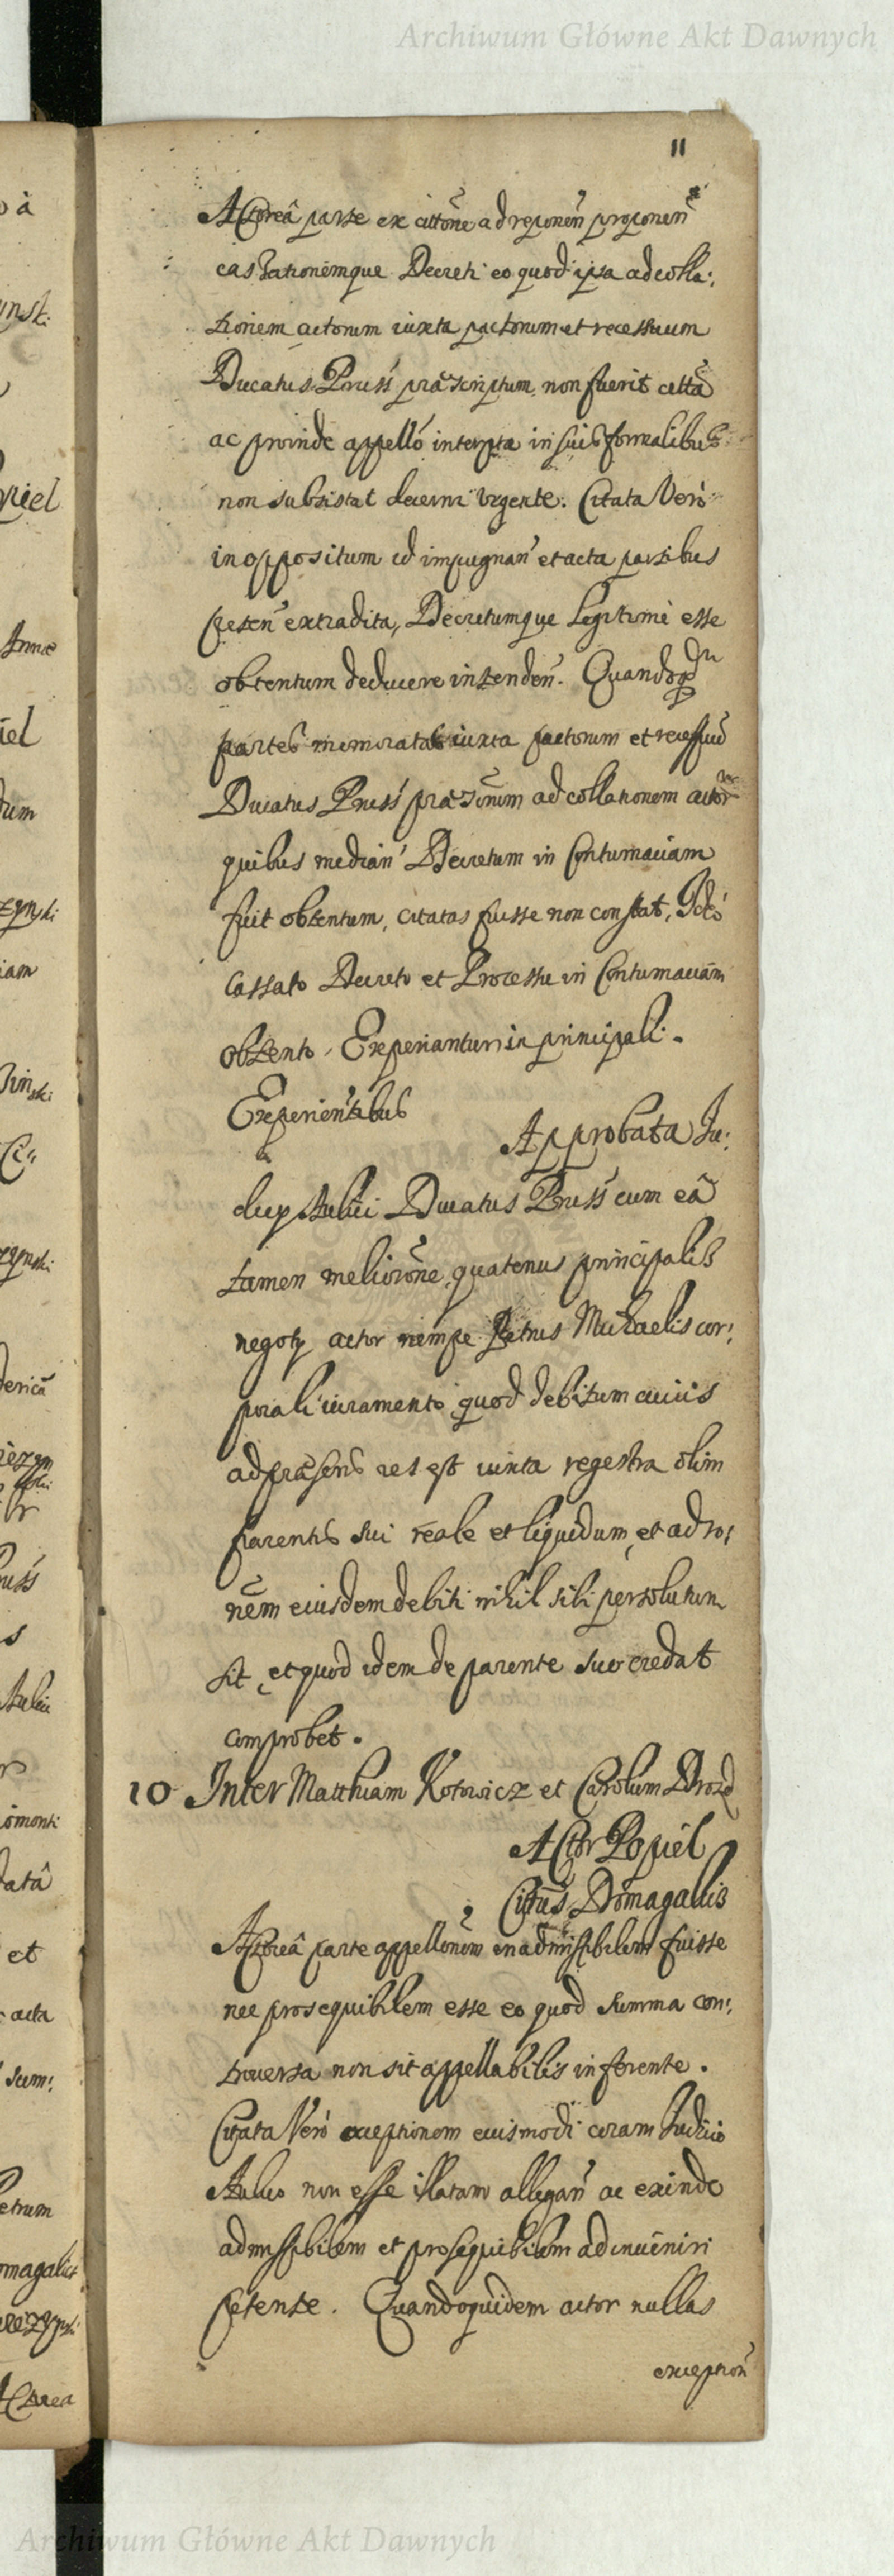 Archiwum Główne Akt Dawnych
11
Actoreâ parte ex cittõne ad reponeñ proponeñ
cassationemque Decreti eo quod ipsa ad colla:
tionem actorum iuxta pactorum et recessuum
Ducatus Pruss præscriptum non fuerit citta
ac proinde appello interpta in suis formalibus
non subsistat decerni urgente. Citata Vero
in oppositum id impugnañ et acta partibus
peteñ extradita, Decretumque legitime esse
obtentum deducere intendeñ. Quandoqdm
partes memoratas iuxta pactorum et recessuũ
Ducatus Pruss præscriptum ad collationem actor
quibus mediañ Decretum in Contumaciam
fuit obtentum, citatas fuisse non constat, Ideo
Cassato Decreto et Processu in Contumaciam
obtento, Experiantur in principali.
Experientibus
Approbata Ju:
dicy Aulici Ducatus Pruss cum eâ
tamen meliorõne quatenus principalis
negoty actor nempe Petrus Michaelis cor:
porali iuramento quod debitum cuius
ad præsens res est iuxta regestra olim
parentis sui reale et liquidum, et ad ro:
nem eiusdem debiti nihil sibi persolutum
sit, et quod idem de parente suo credat
comprobet.
10 Inter Matthiam Kotowicz et Carolum Drozd
Actor Popiel
Cittus Domagallis
Actoreâ parte appellonem inadmissibilem fuisse
nec prosequibilem esse eo quod summa con:
troversa non sit appellabilis inferente.
Citata Vero exceptionem euismodi coram Judicio
Aulico non esse illatam allegañ ac exinde
admissibilem et prosequibilem ad inveniri
petente. Quandoquidem actor nullas
exception
Archiwum Główne Akt Dawnych